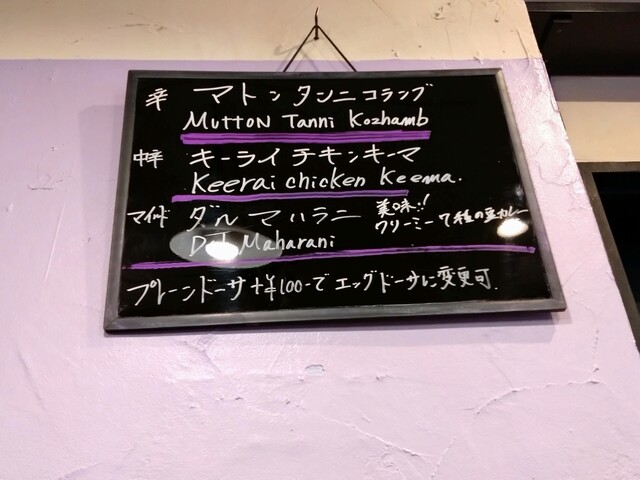 辛 マトンタンニコランブ
Mutton Tanni Kozhamb
中辛 キーライチキンキーマ
Keerai chicken Keema.
マイルド ダルマハラニ 美味!!
クリーミー7種の豆カレー
Dal Maharani
プレーンドーサ+¥100-でエッグドーサに変更可.